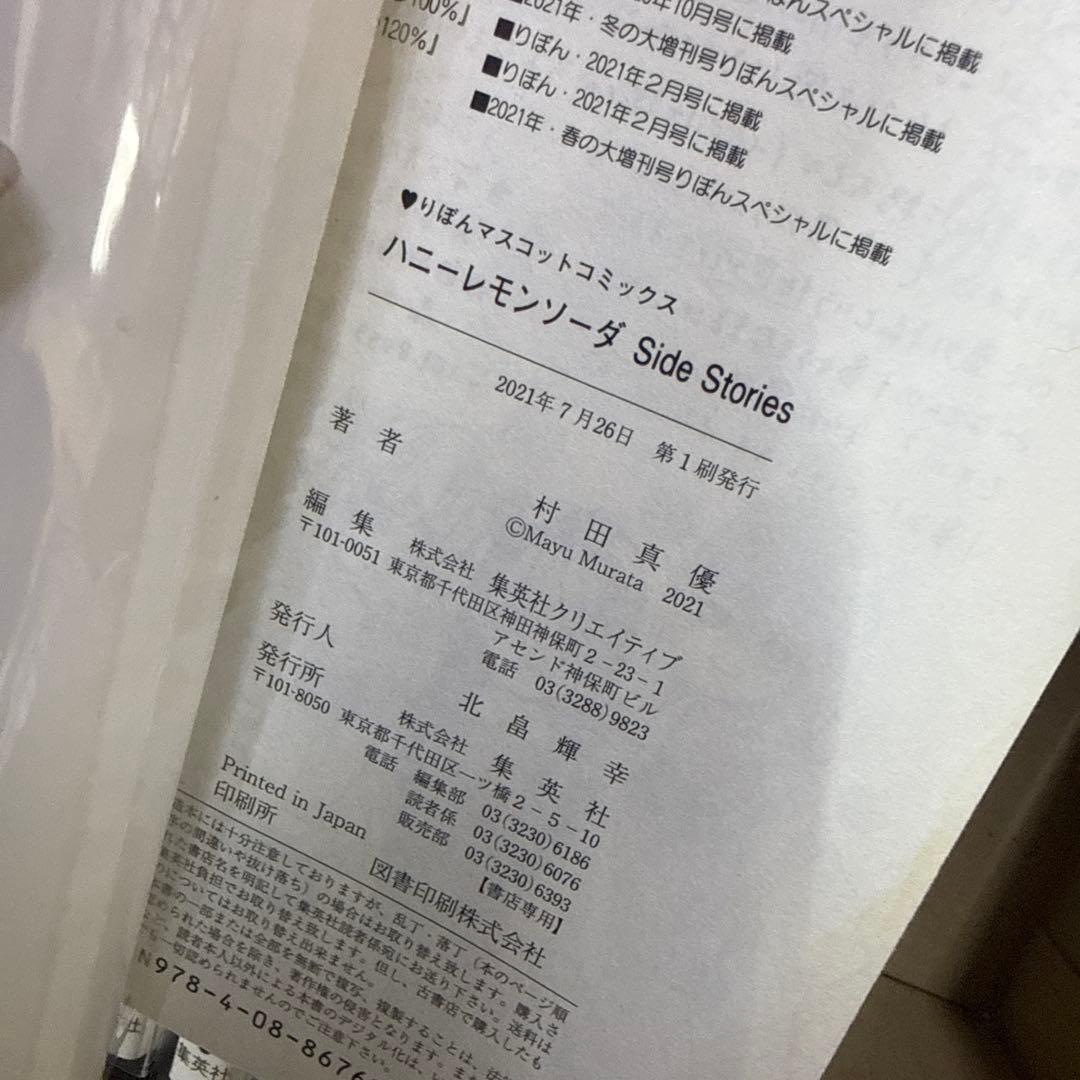 100%」
120%」
年10月号に掲載
ぼんスペシャルに掲載
■2021年・冬の大増刊号りぼんスペシャルに掲載
■りぼん・2021年2月号に掲載
■りぼん・2021年2月号に掲載
■2021年・春の大増刊号りぼんスペシャルに掲載
♥りぼんマスコットコミックス
ハニーレモンソーダ Side Stories
2021年7月26日 第1刷発行
著者 村田真優
©Mayu Murata 2021
編集 株式会社 集英社クリエイティブ
〒101-0051 東京都千代田区神田神保町2-23-1
アセンド神保町ビル
電話 03(3288)9823
発行人 北畠輝幸
発行所 株式会社 集英社
〒101-8050 東京都千代田区一ツ橋2-5-10
電話 編集部 03(3230)6186
読者係 03(3230)6076
販売部 03(3230)6393
【書店専用】
Printed in Japan
印刷所 図書印刷株式会社
造本には十分注意しておりますが、乱丁・落丁(本のページ順
の間違いや抜け落ち)の場合はお取り替え致します。購入さ
れた書店名を明記して集英社読者係宛にお送り下さい。送料は
集英社負担でお取り替え致します。但し、古書店で購入したも
のについてはお取り替え出来ません。
本書の一部または全部を無断で複写、複製することは、法
められた場合を除き、著作権の侵害となります。また
など、読者本人以外による本書のデジタル化は、い
も一切認められませんのでご注意下さい。
N978-4-08-8676
社
集英社